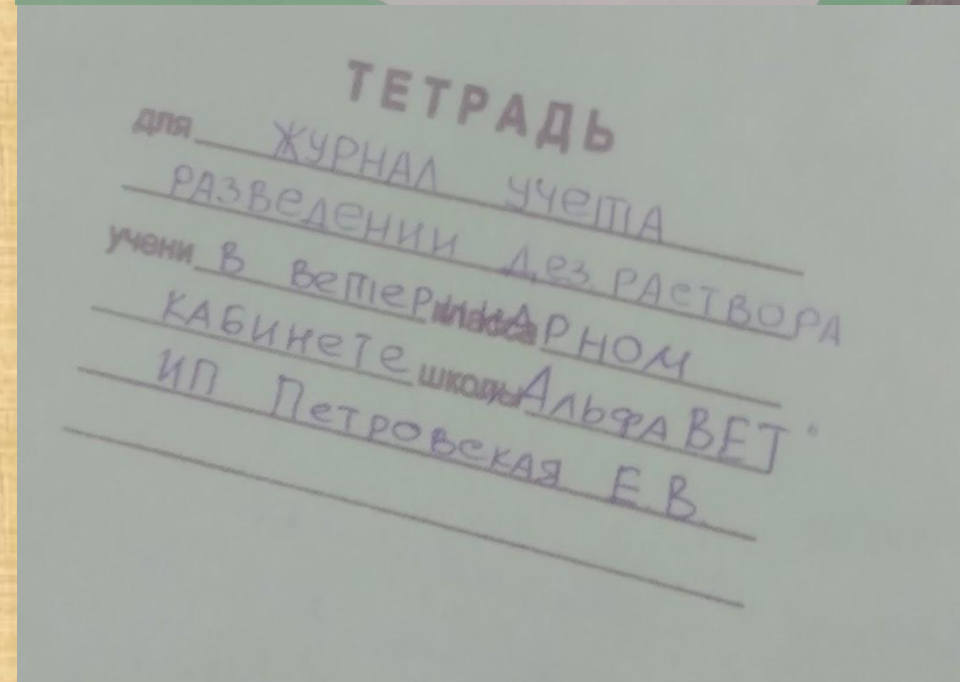 ТЕТРАДЬ
для ЖУРНАЛ УЧЕТА
РАЗВЕДЕНИИ ДЕЗ РАСТВОРА
учени В ВЕТЕРИНАРНОМ
КАБИНЕТЕ школы АЛЬФАВЕТ"
ИП ПЕТРОВСКАЯ Е В.